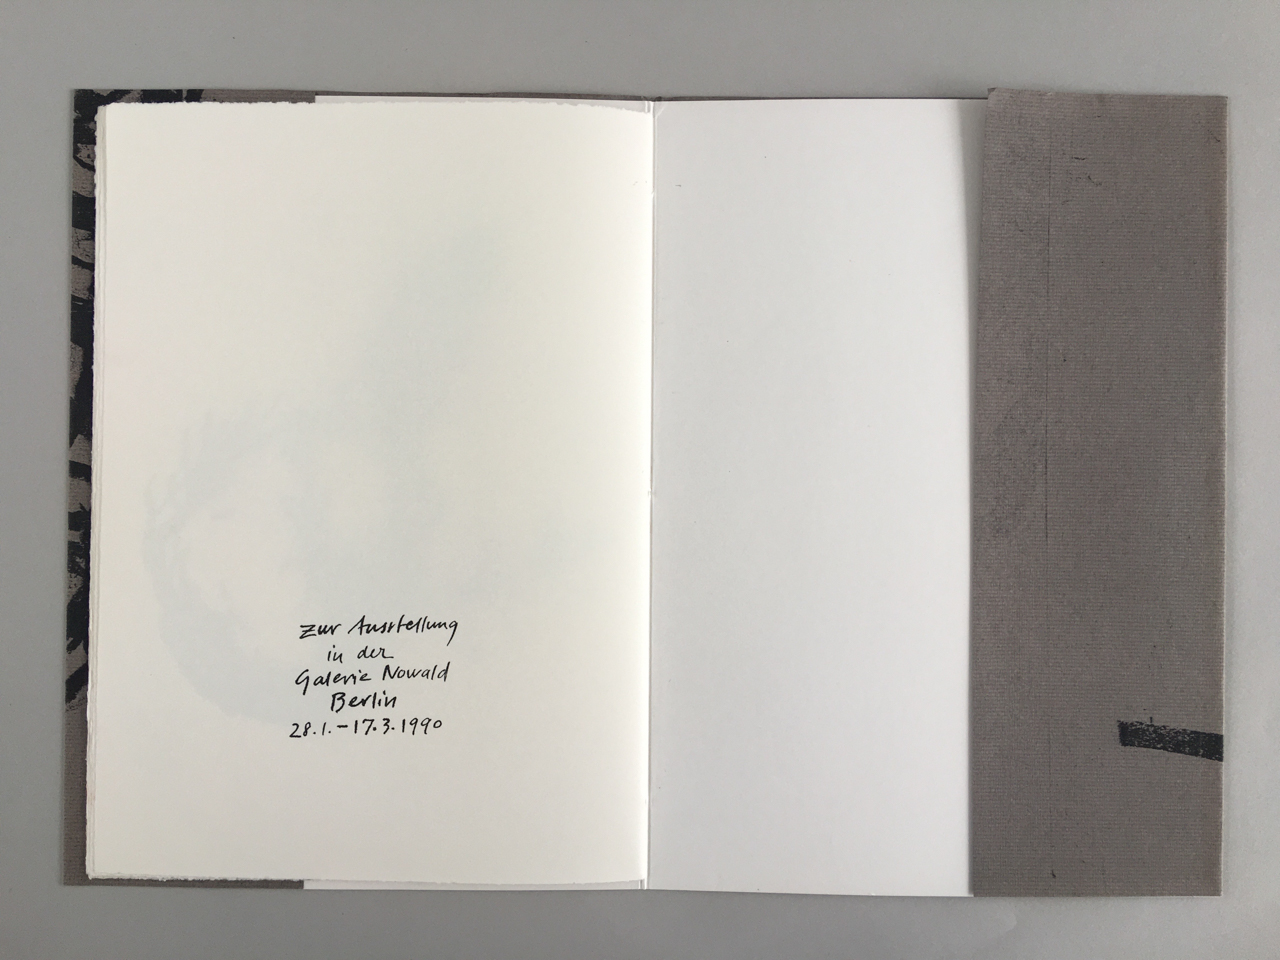 Zur Ausstellung
in der
Galerie Nowald
Berlin
28.1.–17.3.1990